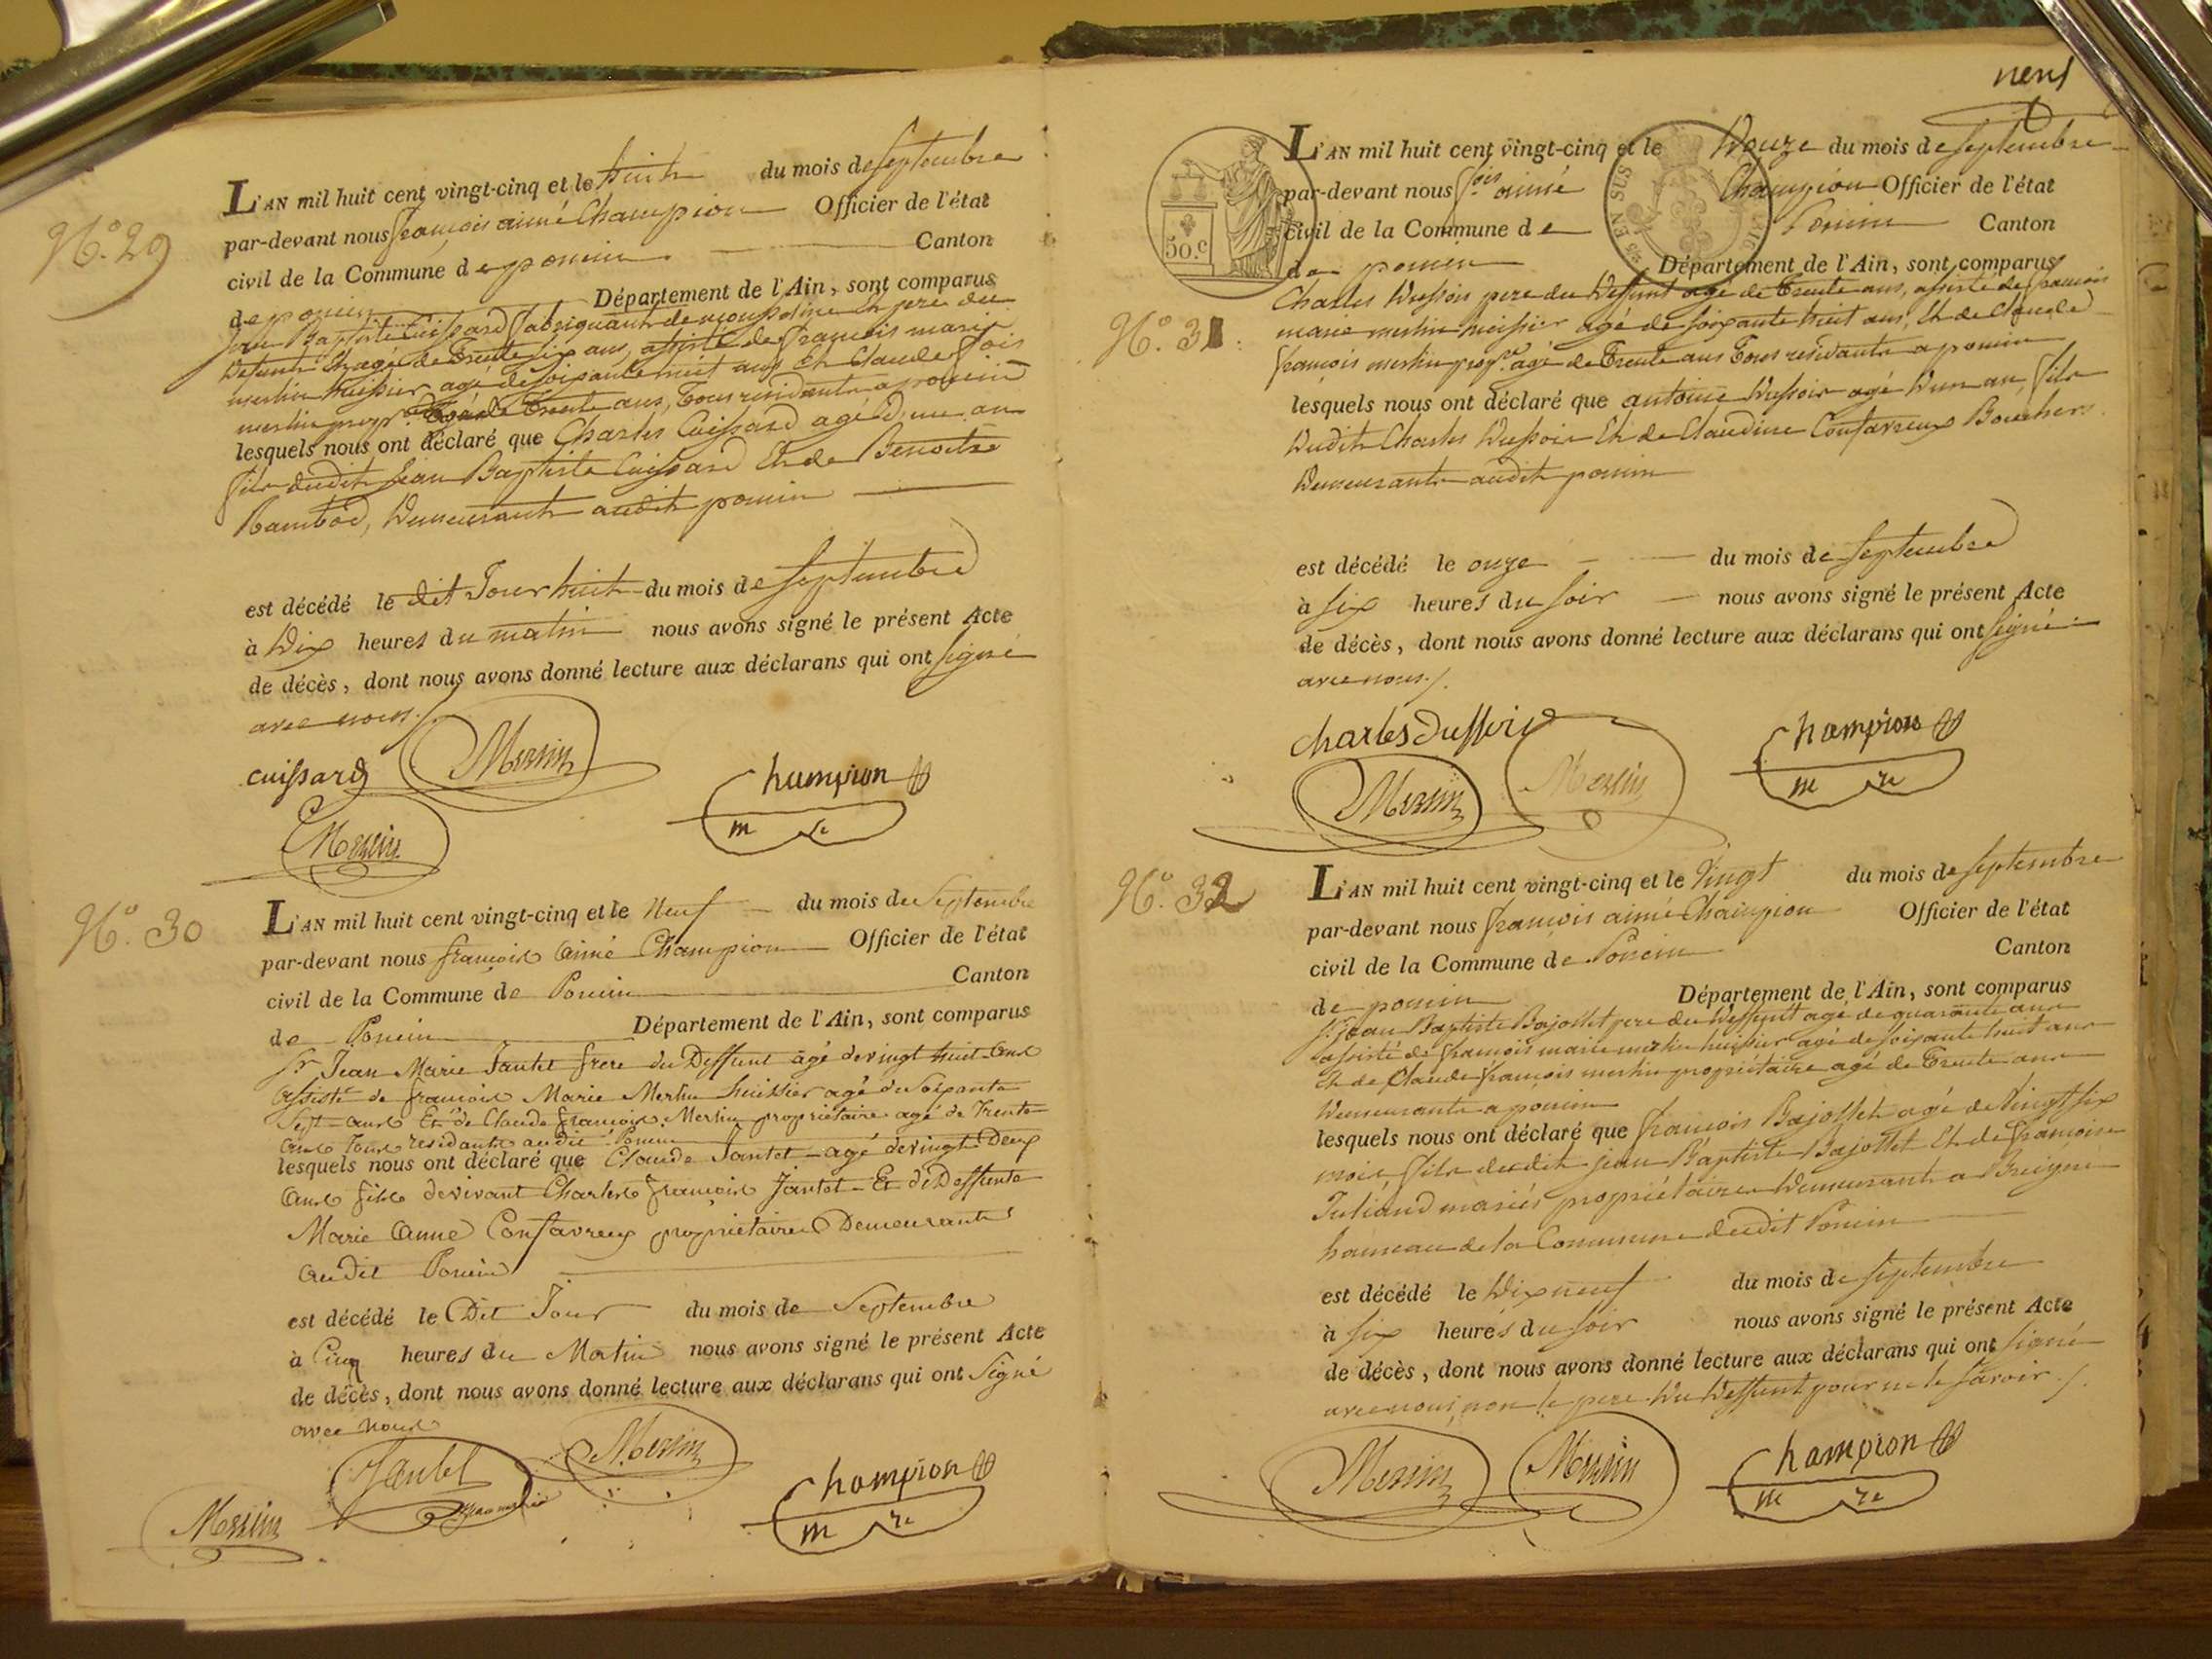 N.° 29
L'AN mil huit cent vingt-cinq et le huit du mois de septembre
par-devant nous françois aimé Champion Officier de l'état
civil de la Commune de poncin Canton
de poncin Département de l'Ain, sont comparus
Jean Baptiste Cuissard fabriquant de mousseline et pere du
Defunt agé de Trente six ans, assisté de françois marie
merlin huissier agé de soixante huit ans et Claude fois
merlin propre agé de Trente ans, Tous residants a poncin
lesquels nous ont déclaré que Charles Cuissard agé d'un an
fils dudit Jean Baptiste Cuissard et de Benoitte
Rambod, Demeurants audit poncin
est décédé le dit Jour huit du mois de septembre
à Dix heures du matin nous avons signé le présent Acte
de décès, dont nous avons donné lecture aux déclarans qui ont signé
avec nous
cuissard Merlin
Champion
m re
Merlin
N.° 30
L'AN mil huit cent vingt-cinq et le Neuf du mois de Septembre
par-devant nous françois aimé Champion Officier de l'état
civil de la Commune de Poncin Canton
de Poncin Département de l'Ain, sont comparus
Sr Jean Marie Jantet frere du Deffunt agé de vingt huit ans
assisté de françois Marie Merlin huissier agé de Soixante
Sept ans Et de Claude françois Merlin propriétaire agé de Trente
ans Tous residants audit Poncin
lesquels nous ont déclaré que Claude Jantet agé de vingt Deux
ans fils de vivant Charles françois Jantet Et de Deffunte
Marie Anne Confavreux propriétaires Demeurants
audit Poncin
est décédé le Dit Jour du mois de Septembre
à Cinq heures du Matin nous avons signé le présent Acte
de décès, dont nous avons donné lecture aux déclarans qui ont Signé
avec nous
Jantet Merlin
Champion
m re
Merlin
neuf
50.c
EN SUS
L'AN mil huit cent vingt-cinq et le Douze du mois de septembre
par-devant nous fois aimé Champion Officier de l'état
civil de la Commune de Poncin Canton
de poncin Département de l'Ain, sont comparus
N.° 31
Charles Dussoir pere du Deffunt agé de Trente ans, assisté de françois
marie merlin huissier agé de soixante huit ans, Et de Claude
françois merlin propre agé de Trente ans Tous residants a poncin
lesquels nous ont déclaré que antoine Dussoir agé D'un an, fils
Dudit Charles Dussoir Et de Claudine Confavreux Bouchers
Demeurants audit poncin
est décédé le onze du mois de septembre
à six heures du soir nous avons signé le présent Acte
de décès, dont nous avons donné lecture aux déclarans qui ont signé
avec nous
Charles Dussoir
Champion
m re
Merlin Merlin
N.° 32
L'AN mil huit cent vingt-cinq et le Vingt du mois de septembre
par-devant nous françois aimé Champion Officier de l'état
civil de la Commune de Poncin Canton
de poncin Département de l'Ain, sont comparus
Sr Jean Baptiste Bajollet pere du Deffunt agé de quarante ans
assisté de françois marie merlin huissier agé de soixante huit ans
Et de Claude françois merlin propriétaire agé de Trente ans
Demeurants a poncin
lesquels nous ont déclaré que françois Bajollet agé de Vingt six
mois, fils dudit jean Baptiste Bajollet Et de françoise
Juliand mariés propriétaires Demeurants a Breigne
hameau de la Commune dudit Poncin
est décédé le Dix neuf du mois de septembre
à six heures du soir nous avons signé le présent Acte
de décès, dont nous avons donné lecture aux déclarans qui ont signé
avec nous, non le pere Du Deffunt pour ne le savoir
Merlin Merlin
Champion
m re